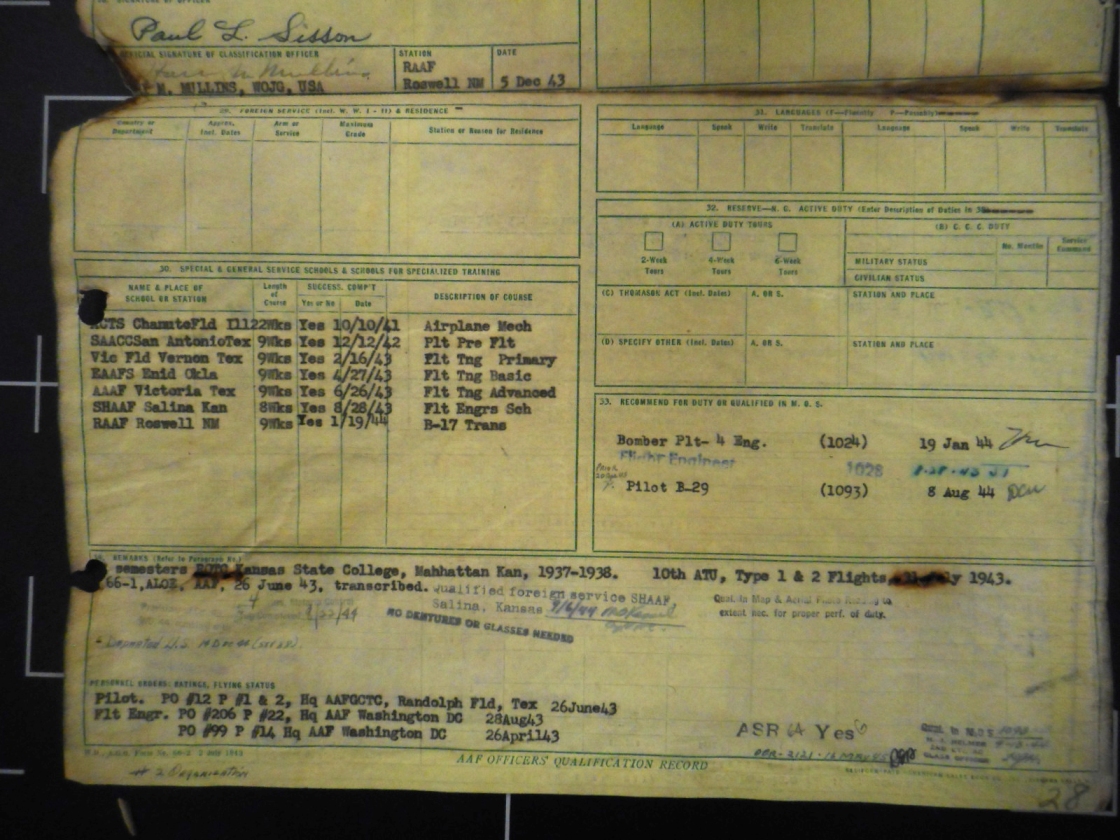 Paul L. Sisson
OFFICIAL SIGNATURE OF CLASSIFICATION OFFICER
STATION
DATE
RAAF
Roswell NM
5 Dec 43
M. MULLINS, WOJG, USA
29. FOREIGN SERVICE (Incl. W. W. I - II) & RESIDENCE
Country or Department
Approx. Incl. Dates
Arm or Service
Maximum Grade
Station or Reason for Residence
31. LANGUAGES
Language Speak Write Translate Language Speak Write Translate
32. RESERVE—N. G. ACTIVE DUTY (Enter Description of Duties in
(A) ACTIVE DUTY TOURS
(B) C. C. C. DUTY
2-Week Tours
4-Week Tours
6-Week Tours
No. Months
Service Command
MILITARY STATUS
CIVILIAN STATUS
(C) THOMASON ACT (Incl. Dates) A. OR S. STATION AND PLACE
(D) SPECIFY OTHER (Incl. Dates) A. OR S. STATION AND PLACE
30. SPECIAL & GENERAL SERVICE SCHOOLS & SCHOOLS FOR SPECIALIZED TRAINING
NAME & PLACE OF SCHOOL OR STATION
Length of Course
SUCCESS. COMP'T
Yes or No Date
DESCRIPTION OF COURSE
ACTS ChanuteFld Ill 22Wks Yes 10/10/41 Airplane Mech
SAACCSan AntonioTex 9Wks Yes 12/12/42 Plt Pre Flt
Vic Fld Vernon Tex 9Wks Yes 2/16/43 Flt Tng Primary
EAAFS Enid Okla 9Wks Yes 4/27/43 Flt Tng Basic
AAAF Victoria Tex 9Wks Yes 6/26/43 Flt Tng Advanced
SHAAF Salina Kan 8Wks Yes 8/28/43 Flt Engrs Sch
RAAF Roswell NM 9Wks Yes 1/19/44 B-17 Trans
33. RECOMMEND FOR DUTY OR QUALIFIED IN M. O. S.
Bomber Plt- 4 Eng. (1024) 19 Jan 44
Flight Engineer 1028 8-28-43
Pilot B-29 (1093) 8 Aug 44
REMARKS (Refer to Paragraph No.)
semesters ROTC Kansas State College, Mahhattan Kan, 1937-1938. 10th ATU, Type 1 & 2 Flights, July 1943.
66-1, ALOE, AAF, 26 June 43, transcribed.
Qualified foreign service SHAAF
Salina, Kansas 9/6/44
NO DENTURES OR GLASSES NEEDED
Qual. in Map & Aerial Photo Reading to
extent nec. for proper perf. of duty.
PERSONNEL ORDERS: RATINGS, FLYING STATUS
Pilot. PO #12 P #1 & 2, Hq AAFGCTC, Randolph Fld, Tex 26June43
Flt Engr. PO #206 P #22, Hq AAF Washington DC 28Aug43
PO #99 P #14 Hq AAF Washington DC 26April43
ASR 64 Yes
AAF OFFICERS' QUALIFICATION RECORD
28